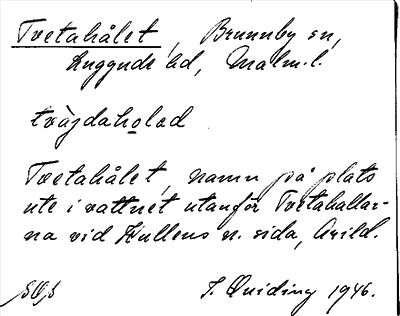 Tvetahålet, Brunnby sn,
Luggude hd, Malm.l.
tvä̀jdaholed
Tvetahålet, namn på plats
ute i vattnet utanför Tvetahallar-
na vid Kullens n. sida, Arild.
S. Quiding 1946.